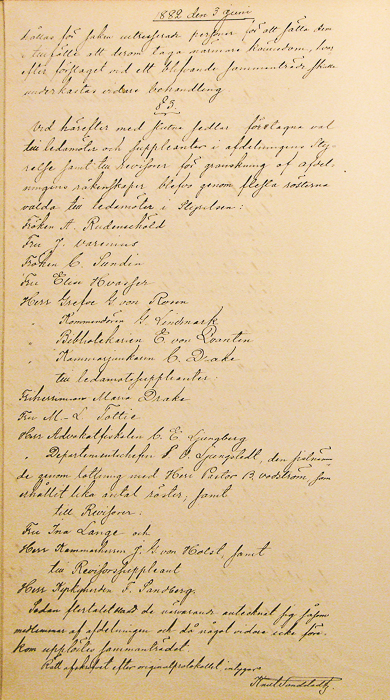 1882 den 3 Juni
kallas för saken intresserade personer för att sätta dem
i tillfälle att derom taga närmare kännedom, hvar-
efter förslaget vid ett blifvande sammanträde skulle
underkastas vidare behandling
§ 3
Vid härefter med slutna sedlar förklagna val
till ledamöter och suppleanter i afdelningens Sty-
relse samt till Revisorer för granskning af afdel-
ningens räkenskaper blefvo genom flesta rösterna
valda till ledamöter i Styrelsen:
Fröken A. Rudenschöld
Fru J. Varenius
Fröken C. Sundin
Fru Elise Hvasser
Herr Grefve G von Rosen
" Kommendören G. Lindmark
" Bibliotekarien E. von Qvanten
" Kammarjunkaren C. Drake
till ledamotssuppleanter:
Friherrinnan Maria Drake
Fru M-L Tottie
Herr Advokatfiskalen C. E. Ljungberg
" Departementschefen P. O. Ljungstedt, den sednare
genom lottning med Herr Pastor B. Wadström, som
erhållit lika antal röster, samt
till Revisorer:
Fru Ina Lange och
Herr Kammarherren J. G von Holst, samt
till Revisorssuppleant
Herr Kyrkoherden F. Sandberg.
Sedan flertalet af de närvarande antecknat sig såsom
medlemmar af afdelningen och då något vidare icke före-
kom upplöstes sammanträdet.
Rätt afskrifvet efter originalprotokollet intygar